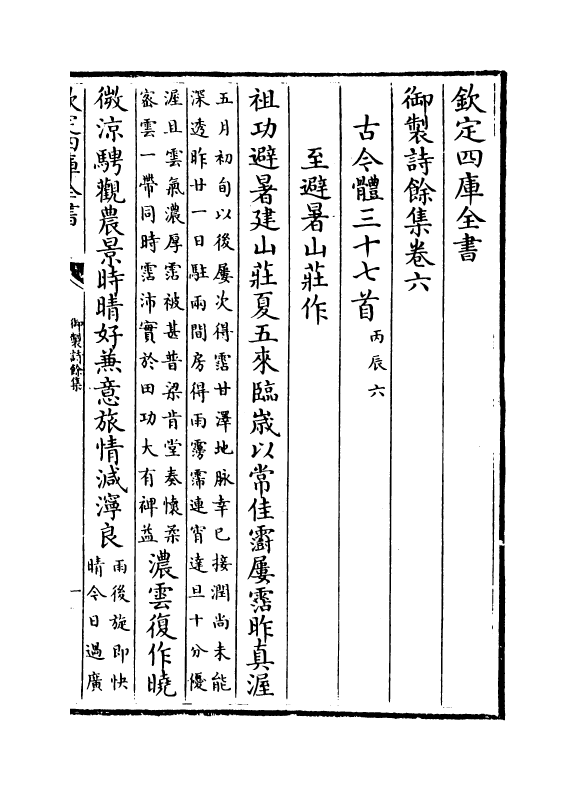 欽定四庫全書
御製詩餘集卷六
古今體三十七首丙辰六
至避暑山莊作
祖功避暑建山莊夏五來臨歲以常佳霨屢霑昨真渥
五月初旬以後屢次得霑甘澤地脉幸已接潤尚未能
深透昨廿一日駐兩間房得雨霶霈連宵達旦十分優
渥且雲氣濃厚霑被甚普梁肯堂奏懷柔
宻雲一帶同時霑沛實於田功大有裨益
濃雲復作曉
微涼騁觀農景時晴好兼意旅情減濘良
雨後旋即快
晴今日過廣
欽定四庫全書
御製詩餘集
一